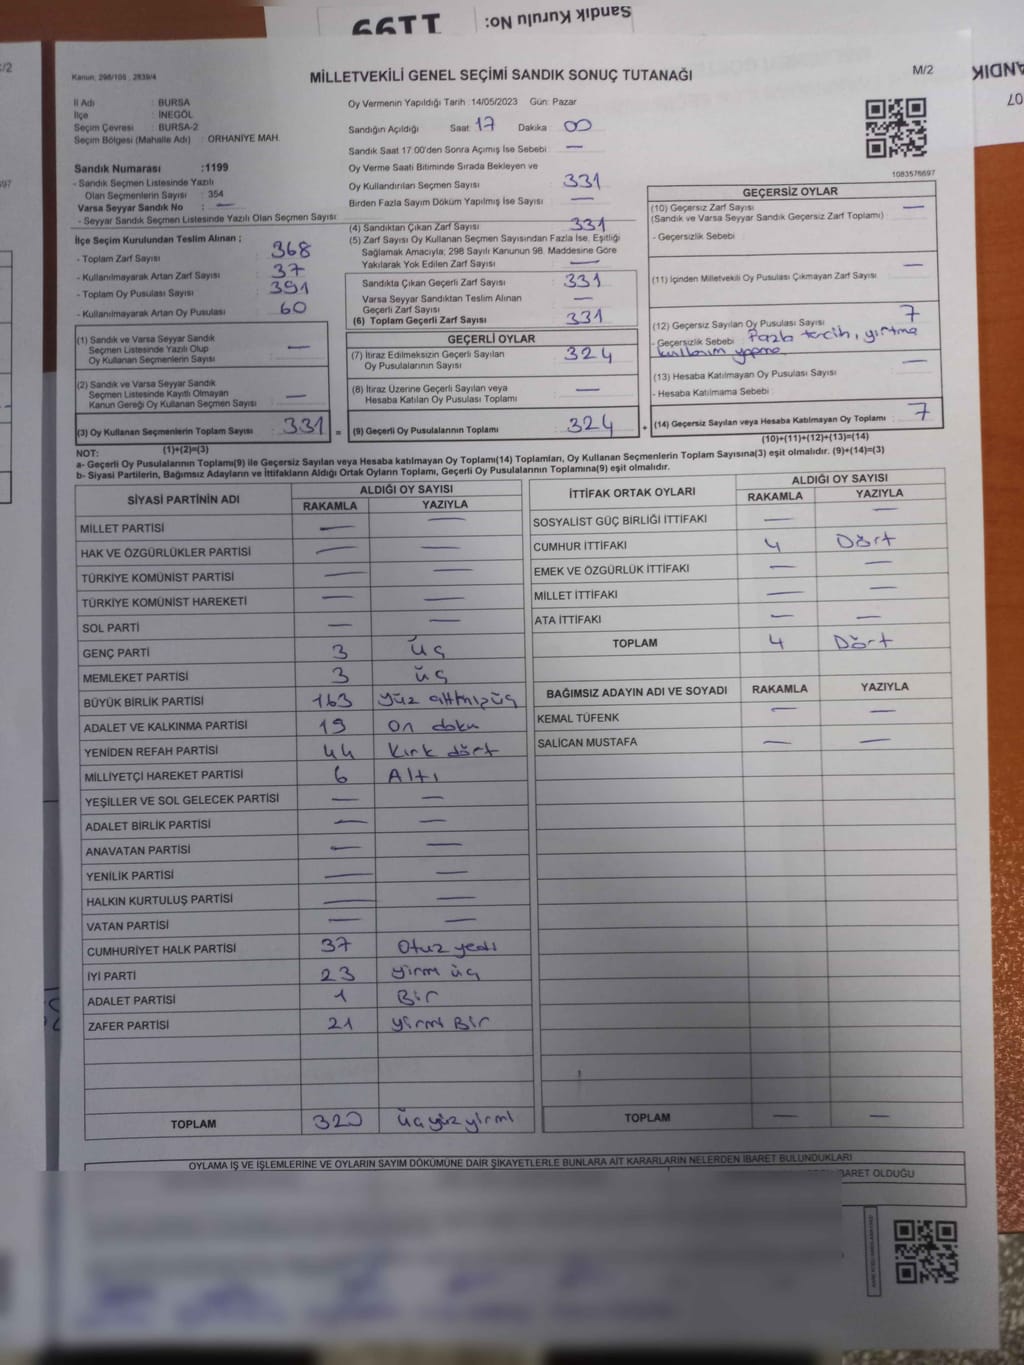 Sandık Kurulu No: 1199
ANDIK
07
/2
Kanun: 298/105 , 2839/4
MİLLETVEKİLİ GENEL SEÇİMİ SANDIK SONUÇ TUTANAĞI
M/2
İl Adı : BURSA
İlçe : İNEGÖL
Seçim Çevresi : BURSA-2
Seçim Bölgesi (Mahalle Adı) : ORHANİYE MAH.
Sandık Numarası :1199
- Sandık Seçmen Listesinde Yazılı
Olan Seçmenlerin Sayısı : 354
Varsa Seyyar Sandık No : —
- Seyyar Sandık Seçmen Listesinde Yazılı Olan Seçmen Sayısı :
İlçe Seçim Kurulundan Teslim Alınan ;
- Toplam Zarf Sayısı : 368
- Kullanılmayarak Artan Zarf Sayısı : 37
- Toplam Oy Pusulası Sayısı : 391
- Kullanılmayarak Artan Oy Pusulası : 60
(1) Sandık ve Varsa Seyyar Sandık
Seçmen Listesinde Yazılı Olup
Oy Kullanan Seçmenlerin Sayısı : —
(2) Sandık ve Varsa Seyyar Sandık
Seçmen Listesinde Kayıtlı Olmayan
Kanun Gereği Oy Kullanan Seçmen Sayısı : —
(3) Oy Kullanan Seçmenlerin Toplam Sayısı : 331 =
(1)+(2)=(3)
Oy Vermenin Yapıldığı Tarih :14/05/2023 Gün: Pazar
Sandığın Açıldığı Saat: 17 Dakika : 00
Sandık Saat 17:00'den Sonra Açımış İse Sebebi : —
Oy Verme Saati Bitiminde Sırada Bekleyen ve
Oy Kullandırılan Seçmen Sayısı : 331
Birden Fazla Sayım Döküm Yapılmış İse Sayısı : —
(4) Sandıktan Çıkan Zarf Sayısı : 331
(5) Zarf Sayısı Oy Kullanan Seçmen Sayısından Fazla İse, Eşitliği
Sağlamak Amacıyla; 298 Sayılı Kanunun 98. Maddesine Göre
Yakılarak Yok Edilen Zarf Sayısı : —
Sandıkta Çıkan Geçerli Zarf Sayısı : 331
Varsa Seyyar Sandıktan Teslim Alınan
Geçerli Zarf Sayısı : —
(6) Toplam Geçerli Zarf Sayısı : 331
GEÇERLİ OYLAR
(7) İtiraz Edilmeksizin Geçerli Sayılan
Oy Pusulasının Sayısı : 324
(8) İtiraz Üzerine Geçerli Sayılan veya
Hesaba Katılan Oy Pusulası Toplamı : —
(9) Geçerli Oy Pusulalarının Toplamı : 324 +
1083576697
GEÇERSİZ OYLAR
(10) Geçersiz Zarf Sayısı : —
(Sandık ve Varsa Seyyar Sandık Geçersiz Zarf Toplamı)
- Geçersizlik Sebebi :
(11) İçinden Milletvekili Oy Pusulası Çıkmayan Zarf Sayısı : —
(12) Geçersiz Sayılan Oy Pusulası Sayısı : 7
- Geçersizlik Sebebi : Fazla tercih, yırtma
kullanım yapma
(13) Hesaba Katılmayan Oy Pusulası Sayısı : —
- Hesaba Katılmama Sebebi :
(14) Geçersiz Sayılan veya Hesaba Katılmayan Oy Toplamı : 7
(10)+(11)+(12)+(13)=(14)
NOT:
a- Geçerli Oy Pusulalarının Toplamı(9) ile Geçersiz Sayılan veya Hesaba katılmayan Oy Toplamı(14) Toplamları, Oy Kullanan Seçmenlerin Toplam Sayısına(3) eşit olmalıdır. (9)+(14)=(3)
b- Siyasi Partilerin, Bağımsız Adayların ve İttifakların Aldığı Ortak Oyların Toplamı, Geçerli Oy Pusulalarının Toplamına(9) eşit olmalıdır.
SİYASİ PARTİNİN ADI ALDIĞI OY SAYISI
RAKAMLA YAZIYLA
MİLLET PARTİSİ — —
HAK VE ÖZGÜRLÜKLER PARTİSİ — —
TÜRKİYE KOMÜNİST PARTİSİ — —
TÜRKİYE KOMÜNİST HAREKETİ — —
SOL PARTİ — —
GENÇ PARTİ 3 üç
MEMLEKET PARTİSİ 3 üç
BÜYÜK BİRLİK PARTİSİ 163 yüz altmışüç
ADALET VE KALKINMA PARTİSİ 19 On doku
YENİDEN REFAH PARTİSİ 44 Kırk dört
MİLLİYETÇİ HAREKET PARTİSİ 6 Altı
YEŞİLLER VE SOL GELECEK PARTİSİ — —
ADALET BİRLİK PARTİSİ — —
ANAVATAN PARTİSİ — —
YENİLİK PARTİSİ — —
HALKIN KURTULUŞ PARTİSİ — —
VATAN PARTİSİ — —
CUMHURİYET HALK PARTİSİ 37 Otuz yedi
İYİ PARTİ 23 yirm üç
ADALET PARTİSİ 1 Bir
ZAFER PARTİSİ 21 yirmi Bir
TOPLAM 320 üçyüz yirmi
İTTİFAK ORTAK OYLARI ALDIĞI OY SAYISI
RAKAMLA YAZIYLA
SOSYALİST GÜÇ BİRLİĞİ İTTİFAKI — —
CUMHUR İTTİFAKI 4 Dört
EMEK VE ÖZGÜRLÜK İTTİFAKI — —
MİLLET İTTİFAKI — —
ATA İTTİFAKI — —
TOPLAM 4 Dört
BAĞIMSIZ ADAYIN ADI VE SOYADI RAKAMLA YAZIYLA
KEMAL TÜFENK — —
SALİCAN MUSTAFA — —
TOPLAM — —
OYLAMA İŞ VE İŞLEMLERİNE VE OYLARIN SAYIM DÖKÜMÜNE DAİR ŞİKAYETLERLE BUNLARA AİT KARARLARIN NELERDEN İBARET BULUNDUKLARI
İBARET OLDUĞU